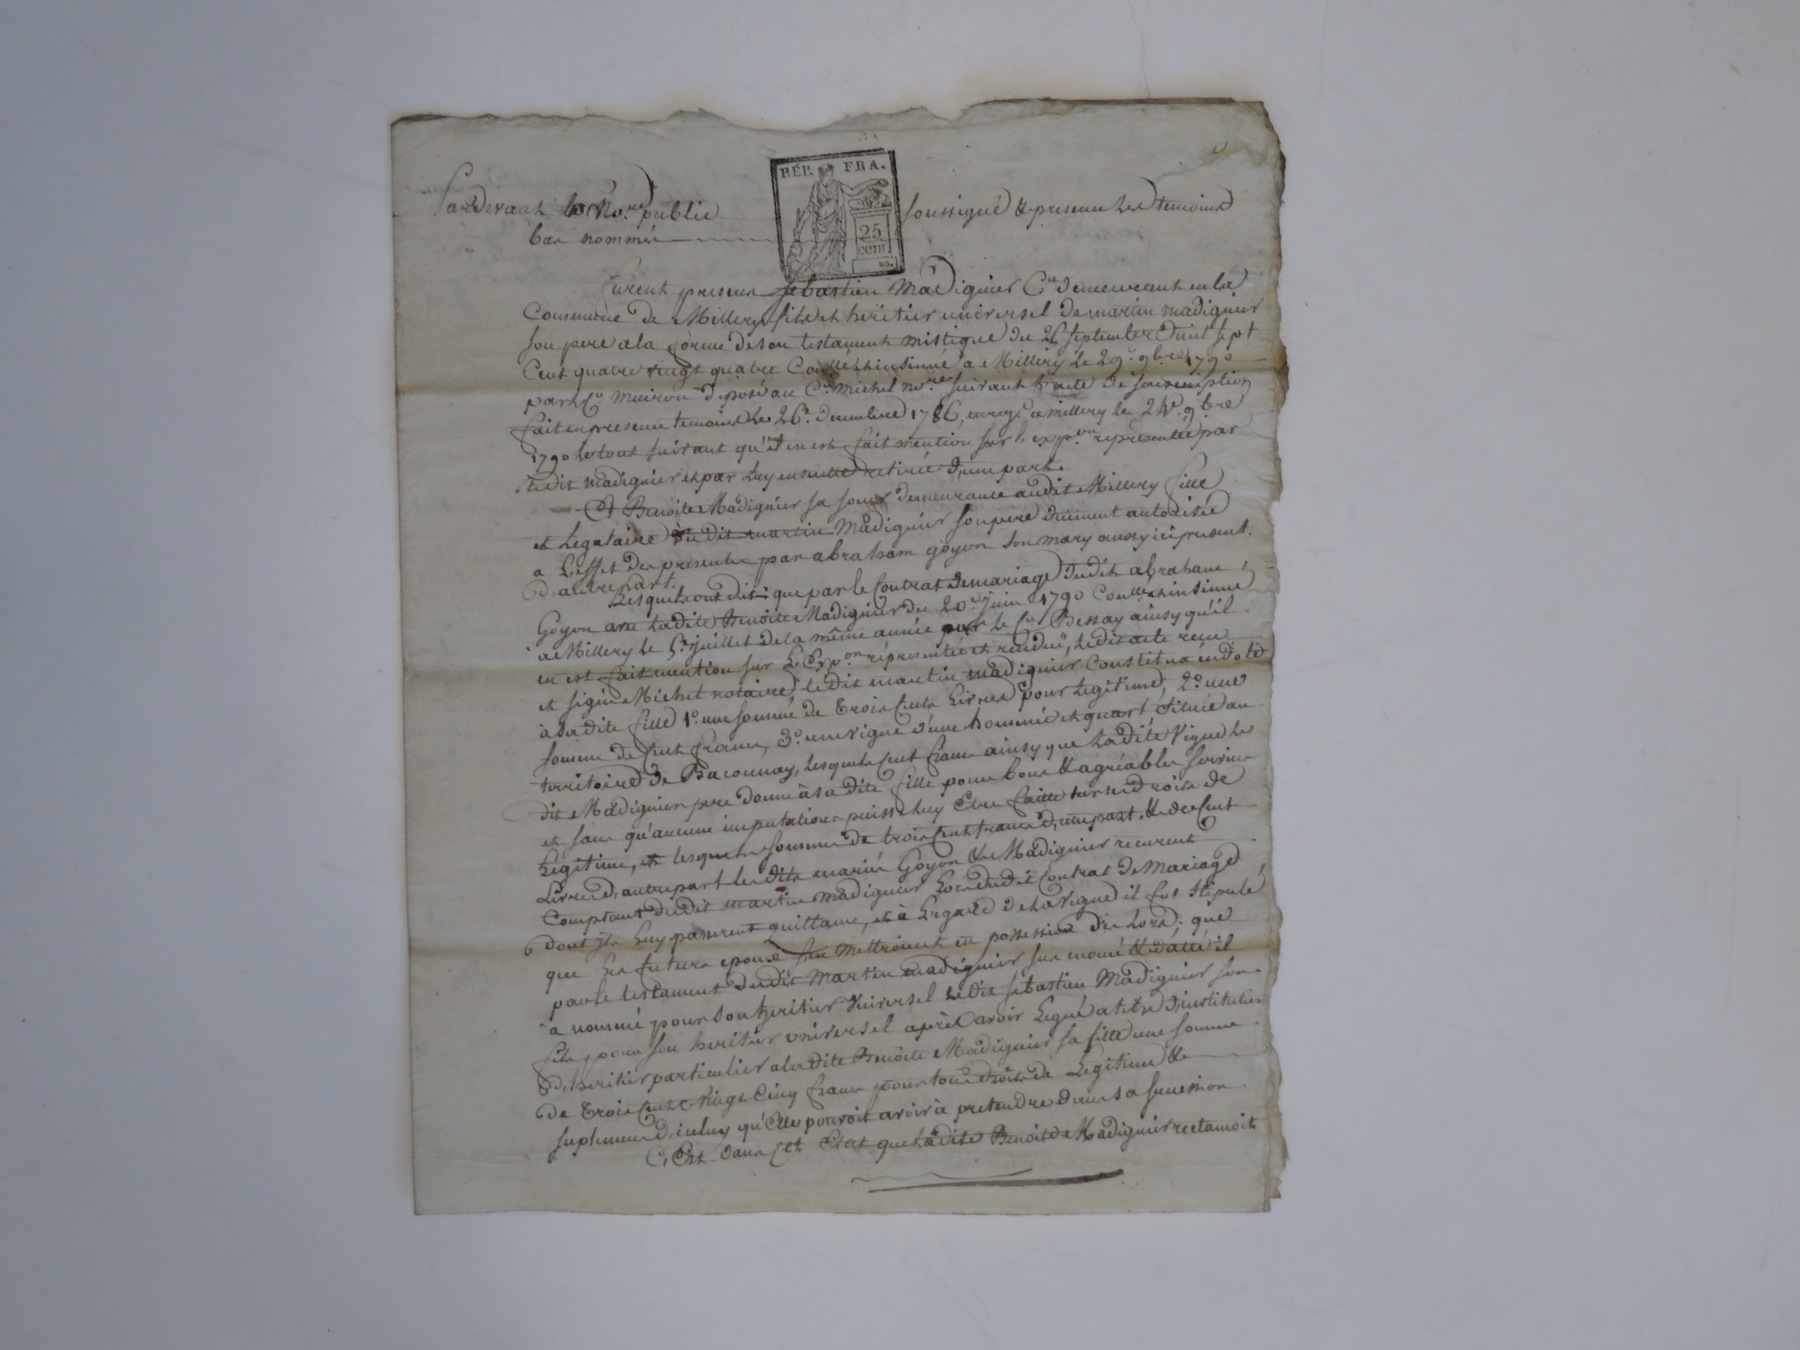 REP. FRA.
25
cem.
Pardevant le No.re public soussigné & presence des temoins
bas nommés
furent presens sebastien Madignier C.en demeurant en la
Commune de Millery fils et heritier universel de martin madignier
son pere a la forme de son testament mistique du 26 septembre mil sept
Cent quatre vingt quatre Controllé et insinué a Millery le 29.e 9bre 1790
par le C.en muiron déposé au C.en michel no.re suivant l'acte de souscription
fait en presence temoins le 26.e decembre 1786, enreg.é a millery le 24.e 9.bre
1790 le tout suivant qu'il en est fait mention sur l'exp.on representée par
ledit madignier et par luy ensuitte retirée d'une part.
Et Benoite Madignier sa soeur demeurante audit Millery fille
et legataire dudit martin Madignier son pere duement autorisée
a l'effet des presentes par abraham goyon son mary aussy icy present.
d'autre part.
Lesquels ont dit que par le Contrat de mariage dudit abraham
Goyon avec ladite Benoite Madignier du 20.e juin 1790 Con.llé et insinué
a Millery le 5.e juillet de la même année par le C.en Bessay ainsy qu'il
en est fait mention sur l'Exp.on réprésentée et rendue, ledit acte reçu
et signé Michel notaire, ledit martin madignier Constitua en dote
à sadite fille 1.o une somme de trois Cents Livres pour Legitime, 2.o une
somme de Cent francs, 3.o une vigne d'une hommée et quart située au
territoire de Baconnay, lesquels Cent francs ainsy que ladite Vigne le
dit Madignier pere donne à sa dite fille pour bons & agréables services
et sans qu'aucune imputation puisse luy Etre faitte sur ses droits de
Legitime, et lesquelles sommes de trois Cent francs d'une part, & de Cent
Livres d'autre part les dits mariés Goyon & Madignier recurent
Comptant dudit martin Madignier lors dudit Contrat de Mariage
dont ils luy passerent quittance, et à l'egard de la Vigne il fut stipulé
que les futurs epoux s'en mettroient en possession dès Lors; que
par le testament dudit Martin madignier sus enoncé & datté il
a nommé pour son heritier Universel ledit sebastien Madignier son
fils, pour son heritier universel après avoir Legué a titre d'institution
d'heritier particulier a ladite Benoite Madignier sa fille une somme
de trois Cent Vingt Cinq francs pour tous droits de Legitime &
suplement d'iceluy qu'Elle pouvoit avoir à pretendre dans sa succession
C'Est dans Cet Etat que ladite Benoite Madignier reclamoit